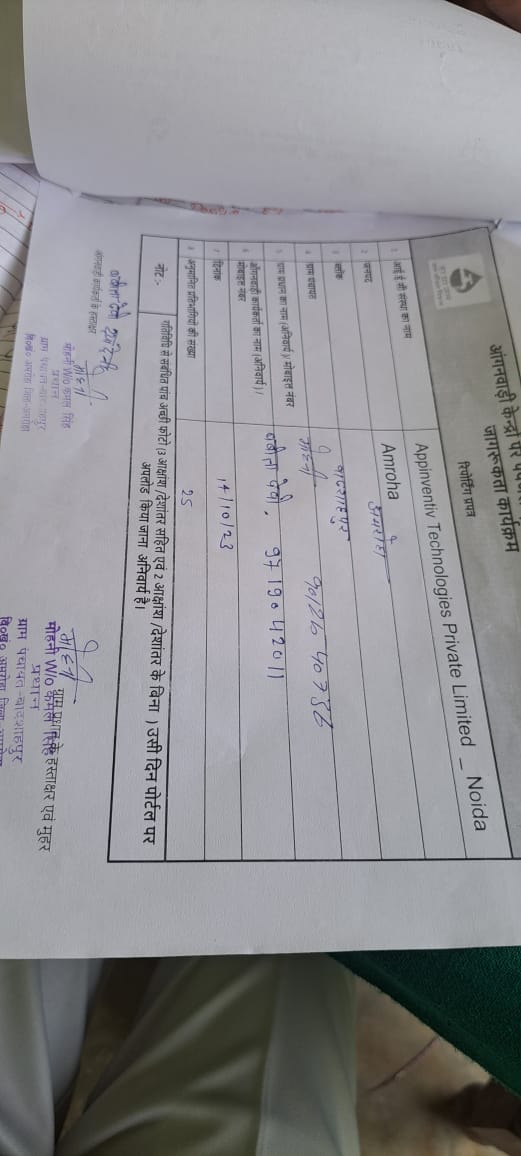 आंगनवाड़ी केन्द्रों पर
जागरूकता कार्यक्रम
रिपोर्टिंग प्रपत्र
1 आई ई सी संस्था का नाम Appinventiv Technologies Private Limited _ Noida
2 जनपद Amroha
3 ब्लॉक अमरोहा
4 ग्राम पंचायत बादशाहपुर
5 ग्राम प्रधान का नाम (अनिवार्य)/ मोबाइल नंबर मोहनी
6 आंगनवाड़ी कार्यकर्ता का नाम (अनिवार्य) / मोबाइल नंबर देवी, 9719042011
7 दिनांक 14/10/23
8 अनुमानित प्रतिभागियों की संख्या 25
नोट :- गतिविधि से संबंधित पांच अच्छी फोटो (3 आक्षांश /देशांतर सहित एवं 2 आक्षांश /देशांतर के बिना ) उसी दिन पोर्टल पर
अपलोड किया जाना अनिवार्य है।
आंगनवाड़ी कार्यकर्ता के हस्ताक्षर
मोहनी W/o कमल सिंह
प्रधान
ग्राम पंचायत-बादशाहपुर
वि०ख० अमरोहा जिला-अमरोहा
ग्राम प्रधान के हस्ताक्षर एवं मुहर
मोहनी W/o कमल सिंह
प्रधान
ग्राम पंचायत-बादशाहपुर
वि०ख० अमरोहा